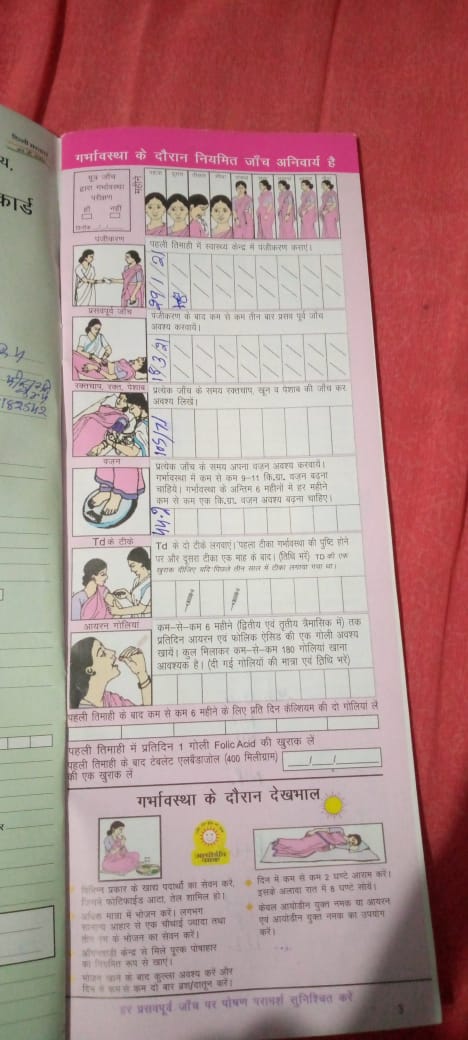 य.
कार्ड
182542
गर्भावस्था के दौरान नियमित जाँच अनिवार्य है
मूत्र जाँच
द्वारा गर्भावस्था
परीक्षण
हाँ नहीं
महीने
पंजीकरण
पहली तिमाही में स्वास्थ्य केन्द्र में पंजीकरण कराएं।
29/1/21
प्रसवपूर्व जाँच
पंजीकरण के बाद कम से कम तीन बार प्रसव पूर्व जाँच
अवश्य करवायें।
18/3/21
रक्तचाप, रक्त, पेशाब
प्रत्येक जाँच के समय रक्तचाप, खून व पेशाब की जाँच कर
अवश्य लिखें।
105/71
वजन
प्रत्येक जाँच के समय अपना वजन अवश्य करवायें।
गर्भावस्था में कम से कम 9-11 कि.ग्रा. वजन बढ़ना
चाहिये। गर्भावस्था के अन्तिम 6 महीनों में हर महीने
कम से कम एक कि.ग्रा. वजन अवश्य बढ़ना चाहिए।
44.2
Td के टीके
Td के दो टीके लगवाएं। पहला टीका गर्भावस्था की पुष्टि होने
पर और दूसरा टीका एक माह के बाद। (तिथि भरें) TD की एक
खुराक दीजिए यदि पिछले तीन साल में टीका लगाया गया था।
आयरन गोलियां
कम–से–कम 6 महीने (द्वितीय एवं तृतीय त्रैमासिक में) तक
प्रतिदिन आयरन एवं फोलिक एसिड की एक गोली अवश्य
खायें। कुल मिलाकर कम–से–कम 180 गोलियां खाना
आवश्यक है। (दी गई गोलियों की मात्रा एवं तिथि भरें)
पहली तिमाही के बाद कम से कम 6 महीने के लिए प्रति दिन कैल्शियम की दो गोलियां लें
पहली तिमाही में प्रतिदिन 1 गोली Folic Acid की खुराक लें
पहली तिमाही के बाद टेबलेट एलबैंडाजोल (400 मिलीग्राम)
की एक खुराक लें
गर्भावस्था के दौरान देखभाल
विभिन्न प्रकार के खाद्य पदार्थों का सेवन करें,
जिनमे फोर्टिफाईड आटा, तेल शामिल हो।
अधिक मात्रा में भोजन करें। लगभग
सामान्य आहार से एक चौथाई ज्यादा तथा
तीन रंग के भोजन का सेवन करें।
आंगनवाड़ी केन्द्र से मिले पूरक पोषाहार
का नियमित रूप से खाएं।
भोजन खाने के बाद कुल्ला अवश्य करें और
दिन में कम से कम दो बार ब्रश/दातून करें।
दिन में कम से कम 2 घण्टे आराम करें।
इसके अलावा रात में 8 घण्टे सोयें।
केवल आयोडीन युक्त नमक या आयरन
एवं आयोडीन युक्त नमक का उपयोग
करें।
हर प्रसवपूर्व जाँच पर पोषण परामर्श सुनिश्चित करें
3